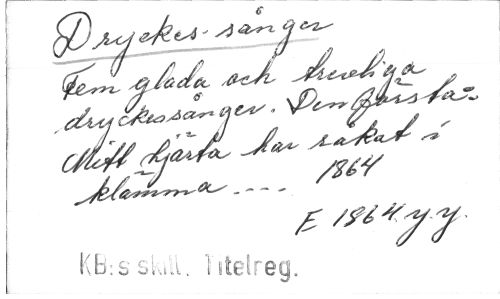 Dryckes-sånger
Fem glada och trevliga
dryckessånger. Den första:
Mitt hjärta har råkat i
klämma .... 1864
E 1864. y. y.
KB:s skill. Titelreg.